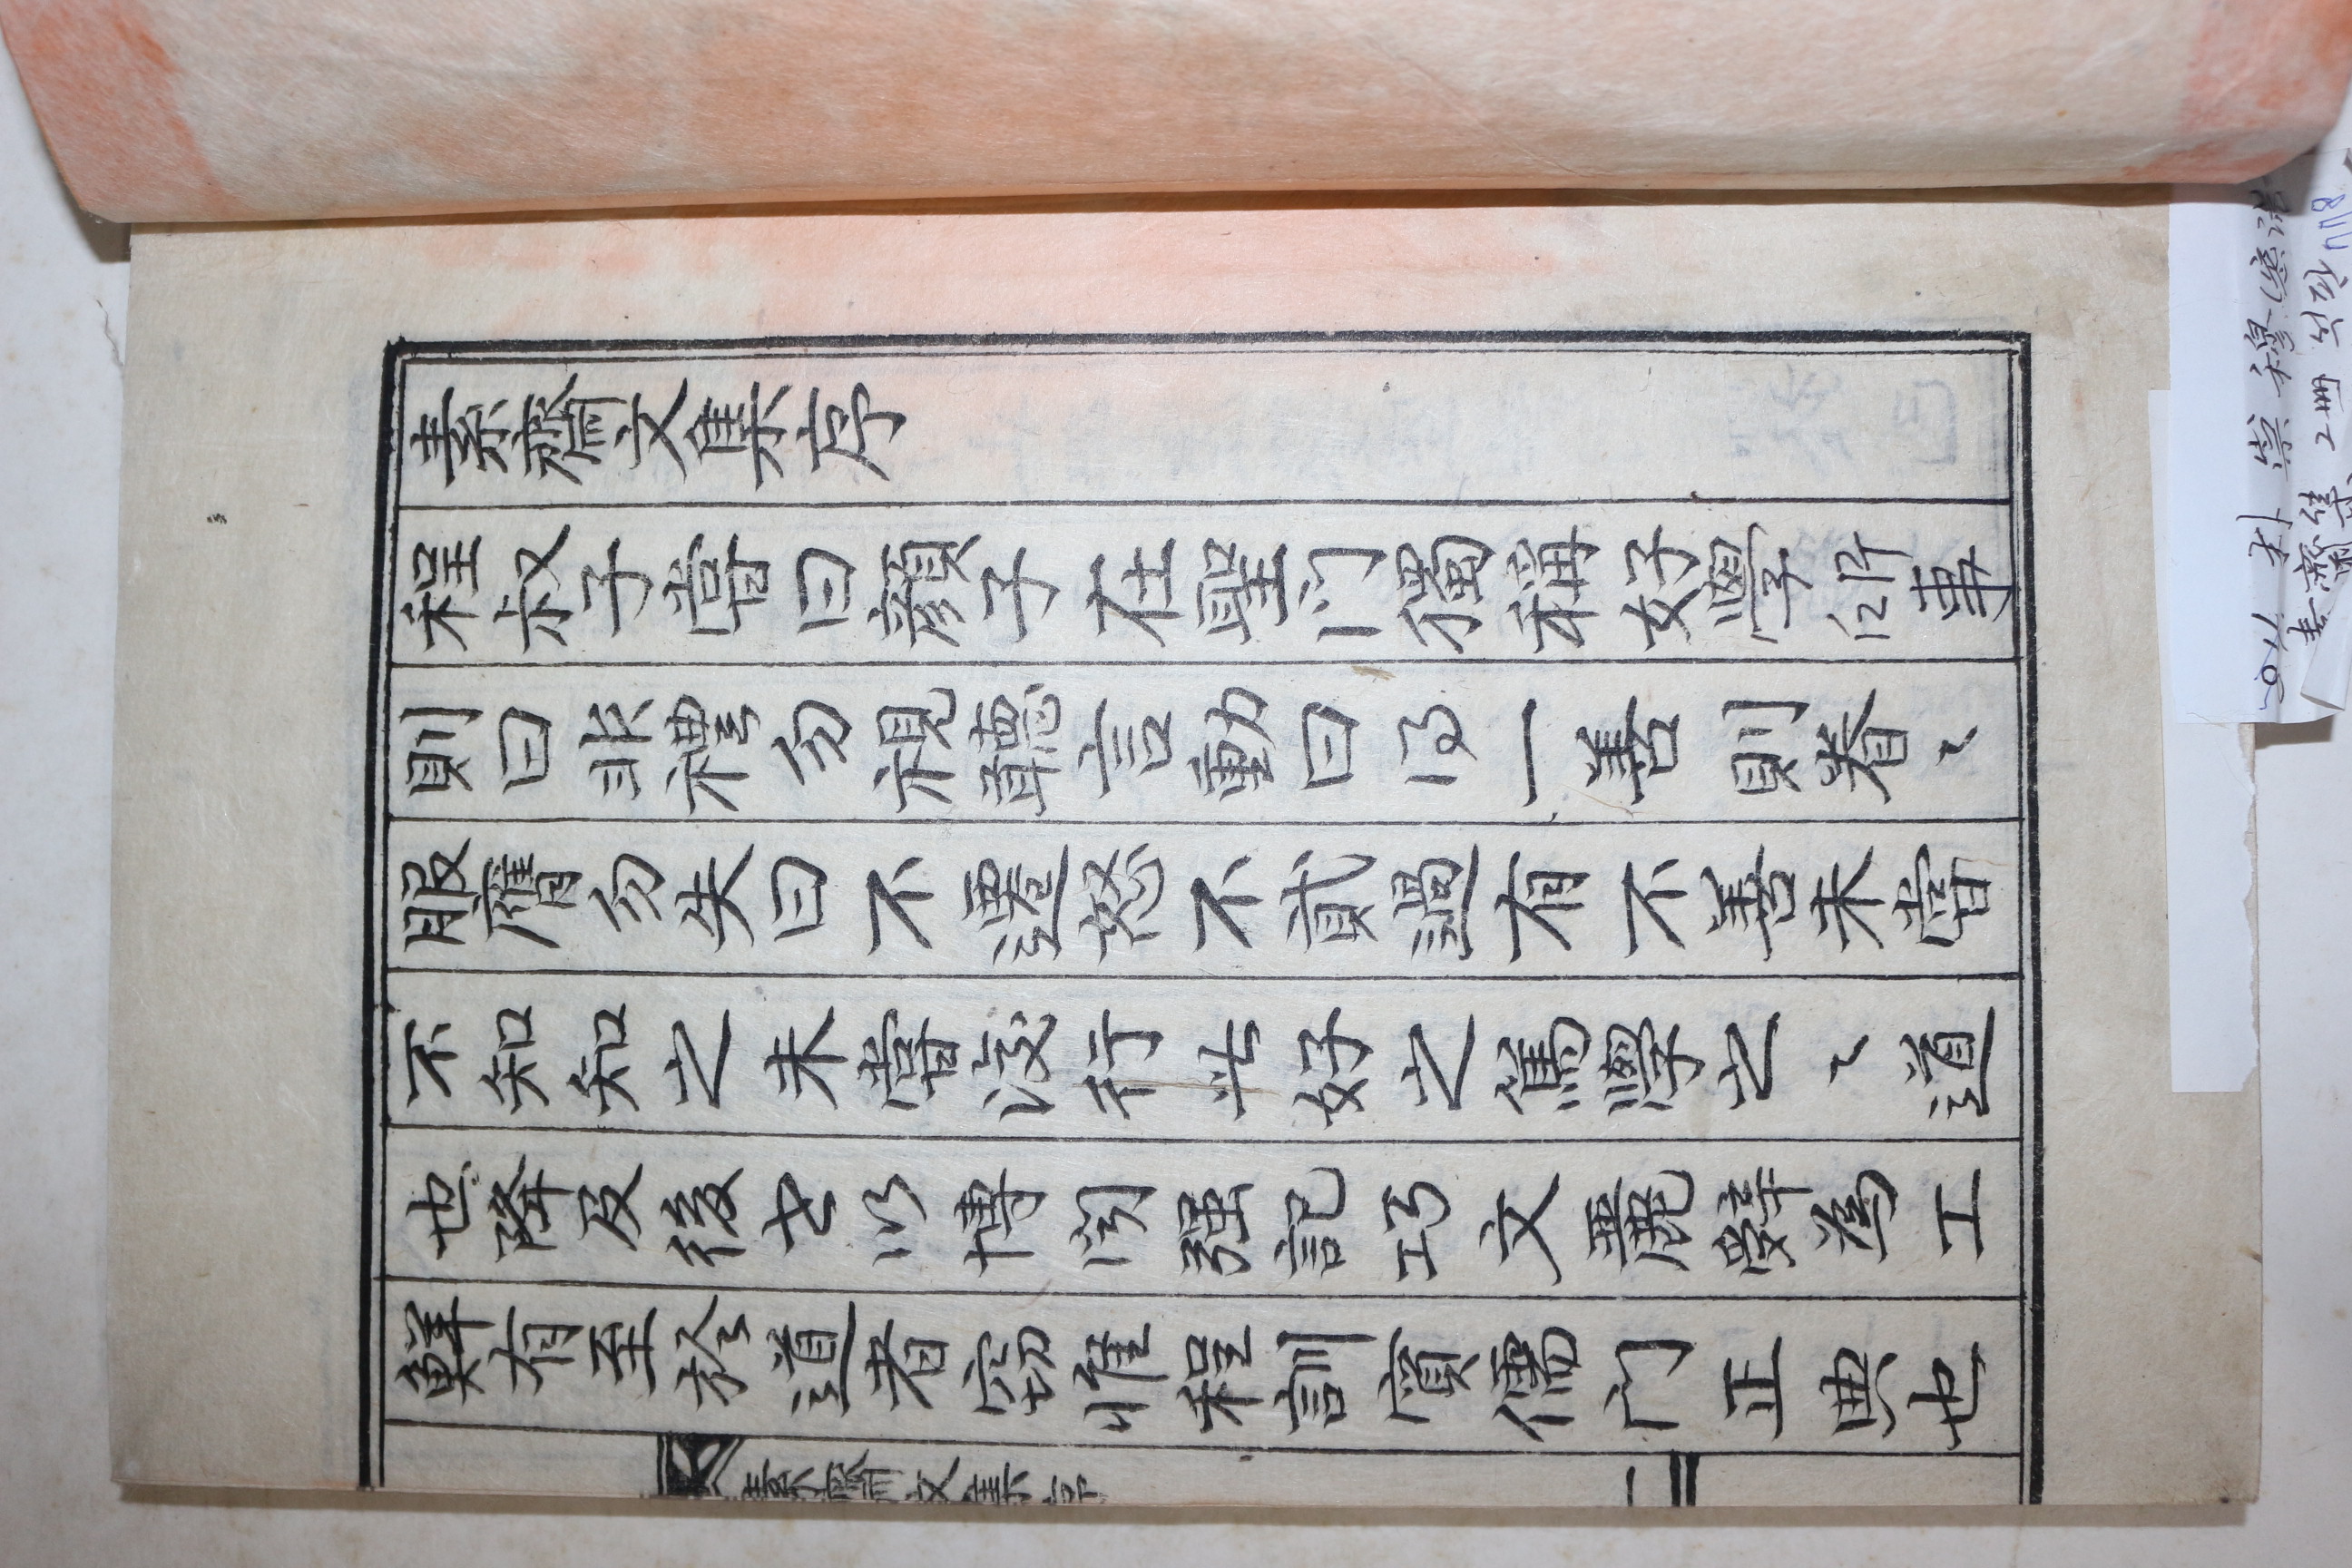 素齋文集序
程叔子嘗曰顏子在聖門獨稱好學所事
則曰非禮勿視聽言動曰得一善則眷〻
服膺勿失曰不遷怒不貳過有不善未嘗
不知知之未嘗復行此好之篤學之〻道
也降及後世以博聞强記巧文麗辭爲工
鮮有至於道者竊惟程訓實儒門正典也
素齋文集序
一
朴崇穆
素齋集 2冊 석판 778